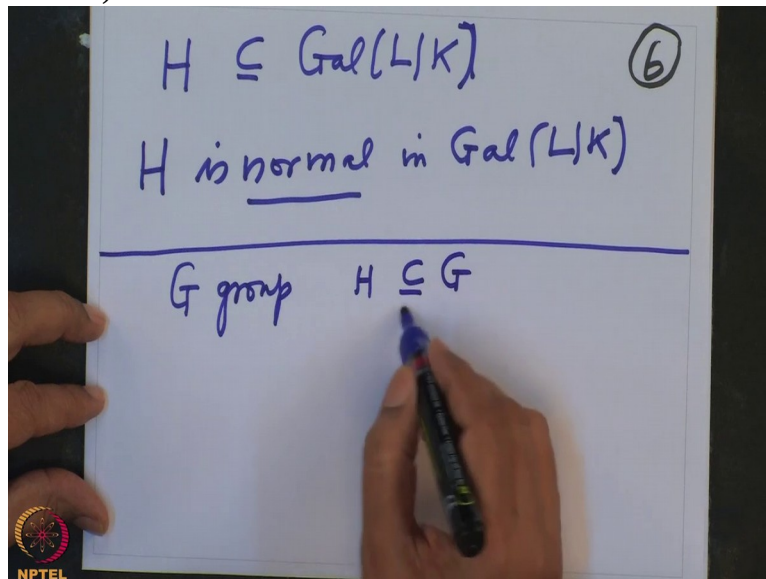 H ⊆ Gal(L|K)
⑥
H is normal in Gal(L|K)
G group H ⊆ G
NPTEL